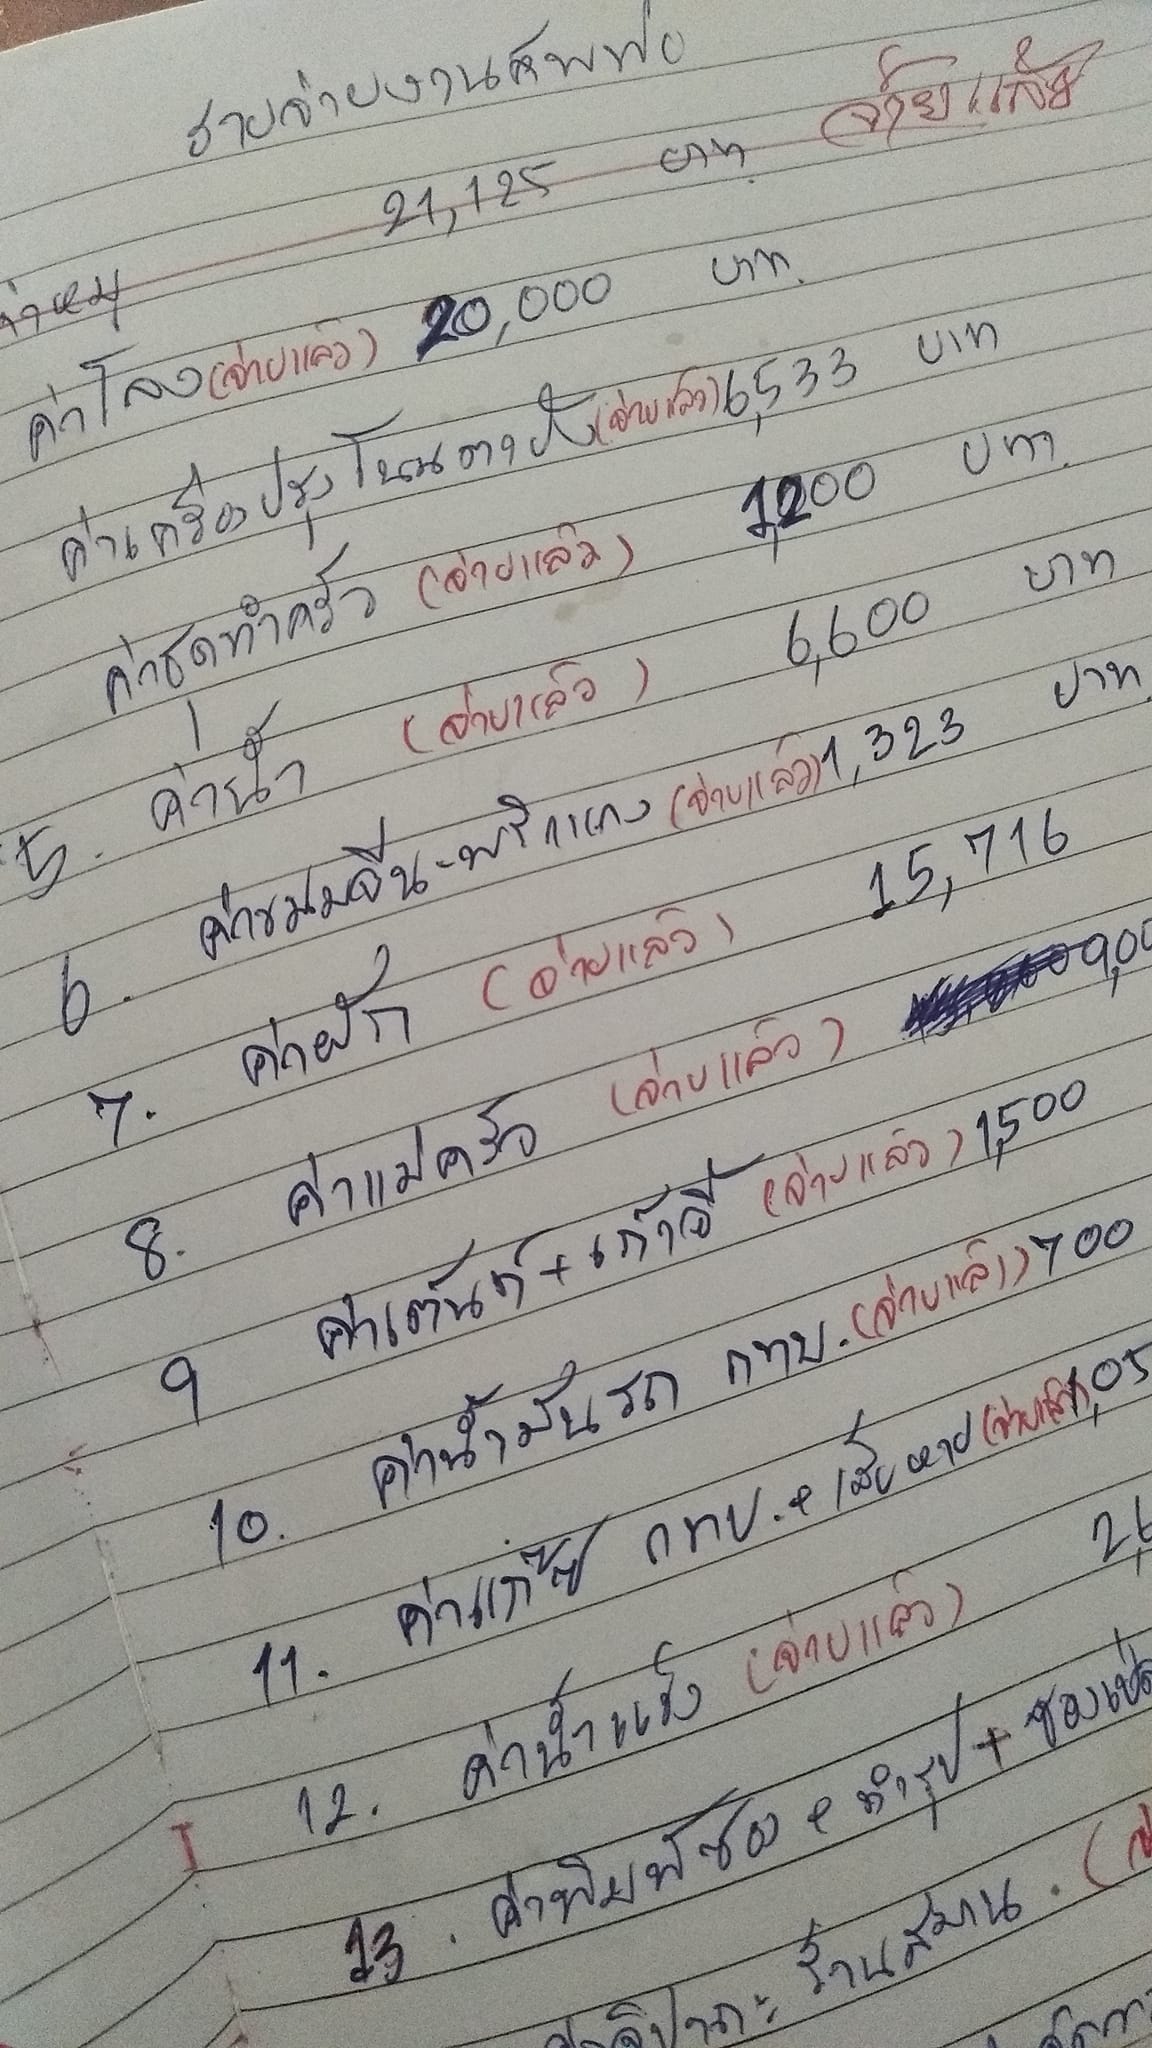 รายจ่ายงานศพพ่อ
ค่าหมู 21,125 บาท. จ่ายแล้ว
ค่าโลง (จ่ายแล้ว) 20,000 บาท.
ค่าเครื่องปรุง (จ่ายแล้ว) 6,533 บาท
ค่าชุดทำครัว (จ่ายแล้ว) 1,200 บาท.
5. ค่าน้ำ (จ่ายแล้ว) 6,600 บาท
6. ค่าขนมจีน-พริกแกง (จ่ายแล้ว) 1,323 บาท.
7. ค่าผัก (จ่ายแล้ว) 15,716
8. ค่าแม่ครัว (จ่ายแล้ว)
9 ค่าเต้นท์ + เก้าอี้ (จ่ายแล้ว) 1,500
10. ค่าน้ำมันรถ กทบ. (จ่ายแล้ว) 700
11. ค่าแก๊ส กทบ. + เสียหาย (จ่ายแล้ว)
12. ค่าน้ำแข็ง (จ่ายแล้ว)
13. ค่าพิมพ์ซอง + ทำรูป +
ร้านสมาน.